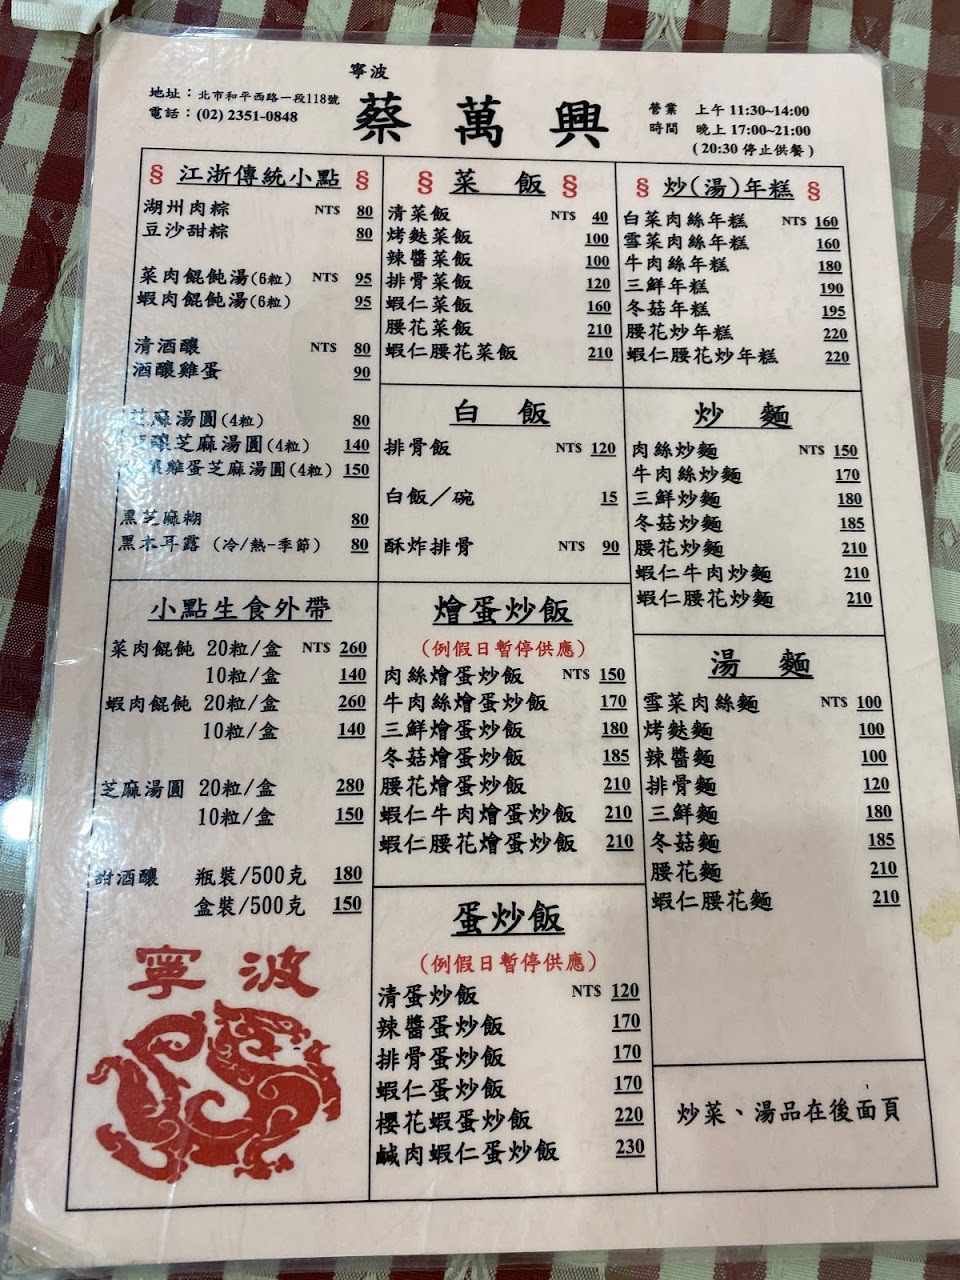 寧波
蔡萬興
地址：北市和平西路一段118號
電話：(02) 2351-0848
營業 上午 11:30~14:00
時間 晚上 17:00~21:00
(20:30 停止供餐)
§ 江浙傳統小點 §
湖州肉粽 NT$ 80
豆沙甜粽 80
菜肉餛飩湯(6粒) NT$ 95
蝦肉餛飩湯(6粒) 95
清酒釀 NT$ 80
酒釀雞蛋 90
芝麻湯圓(4粒) 80
釀芝麻湯圓(4粒) 140
雞蛋芝麻湯圓(4粒) 150
黑芝麻糊 80
黑木耳露 (冷/熱-季節) 80
小點生食外帶
菜肉餛飩 20粒/盒 NT$ 260
10粒/盒 140
蝦肉餛飩 20粒/盒 260
10粒/盒 140
芝麻湯圓 20粒/盒 280
10粒/盒 150
甜酒釀 瓶裝/500克 180
盒裝/500克 150
寧波
§ 菜 飯 §
清菜飯 NT$ 40
烤麩菜飯 100
辣醬菜飯 100
排骨菜飯 120
蝦仁菜飯 160
腰花菜飯 210
蝦仁腰花菜飯 210
白 飯
排骨飯 NT$ 120
白飯／碗 15
酥炸排骨 NT$ 90
燴蛋炒飯
(例假日暫停供應)
肉絲燴蛋炒飯 NT$ 150
牛肉絲燴蛋炒飯 170
三鮮燴蛋炒飯 180
冬菇燴蛋炒飯 185
腰花燴蛋炒飯 210
蝦仁牛肉燴蛋炒飯 210
蝦仁腰花燴蛋炒飯 210
蛋炒飯
(例假日暫停供應)
清蛋炒飯 NT$ 120
辣醬蛋炒飯 170
排骨蛋炒飯 170
蝦仁蛋炒飯 170
櫻花蝦蛋炒飯 220
鹹肉蝦仁蛋炒飯 230
§ 炒(湯)年糕 §
白菜肉絲年糕 NT$ 160
雪菜肉絲年糕 160
牛肉絲年糕 180
三鮮年糕 190
冬菇年糕 195
腰花炒年糕 220
蝦仁腰花炒年糕 220
炒 麵
肉絲炒麵 NT$ 150
牛肉絲炒麵 170
三鮮炒麵 180
冬菇炒麵 185
腰花炒麵 210
蝦仁牛肉炒麵 210
蝦仁腰花炒麵 210
湯 麵
雪菜肉絲麵 NT$ 100
烤麩麵 100
辣醬麵 100
排骨麵 120
三鮮麵 180
冬菇麵 185
腰花麵 210
蝦仁腰花麵 210
炒菜、湯品在後面頁